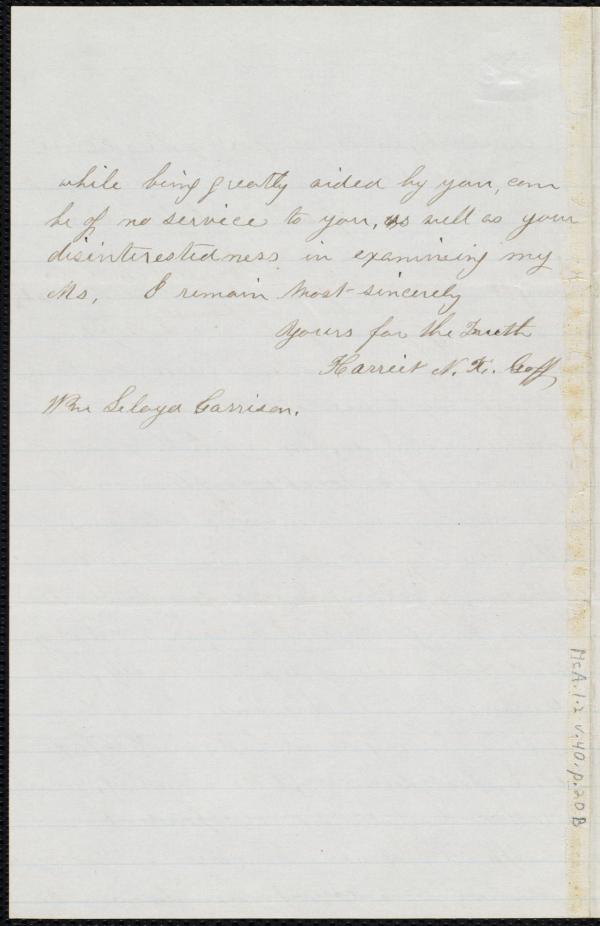 while being greatly aided by you, can
be of no service to you, as well as your
disinterestedness in examining my
Ms. I remain Most sincerely
Yours for the Truth
Harriet N. K. Goff
Wm Lloyd Garrison.
Ms.A.1.2 v.40, p.20B